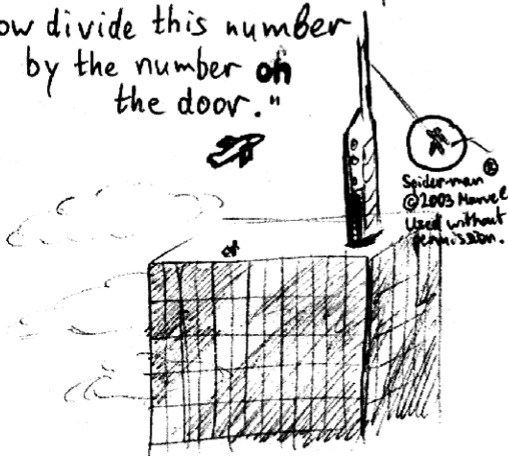 ow divide this number
by the number on
the door."
Spider-man ®
©2003 Marvel
Used without
permission.